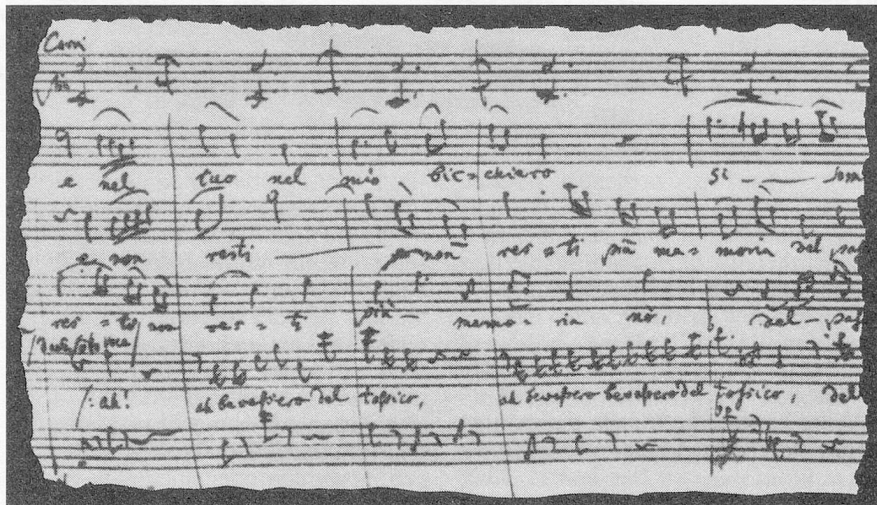 Corni
e nel tuo nel mio bic = chiero si som
e non resti non res = ti più me = moria del pas
res = ti non res = ti più memo = ria nò, del pas
/: ah! ah bevessero del tossico, ah bevessero bevessero del tossico, del